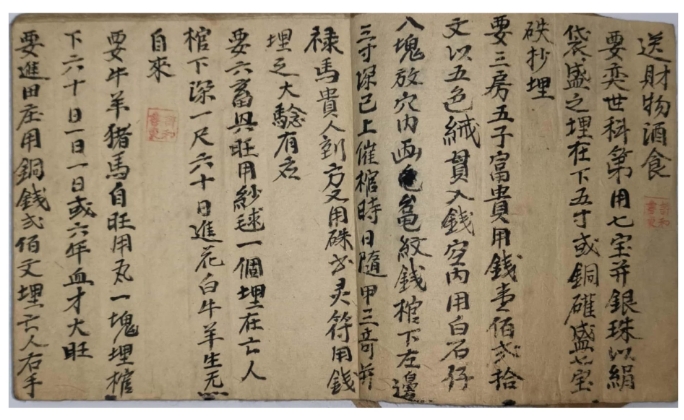 送財物酒食
要奕世科第用七宝并銀珠以絹
袋盛之埋在下五寸或銅礶盛七宝
砆抄埋
要三房五子富貴用錢壹佰弍拾
文以五色絨貫入錢穴內用白石仔
八塊放穴內画龟紋錢棺下左邊
三寸深已上催棺時日隨甲三奇并
禄馬貴人到方又用硃书灵符用錢
埋之大驗有応
要六畜興旺用紗毬一個埋在亡人
棺下深一尺六十日進花白牛羊生无
自來
要牛羊猪馬自旺用瓦一塊埋棺
下六十日一日一日或六年血才大旺
要進田庄用銅錢弍佰文埋亡人右手